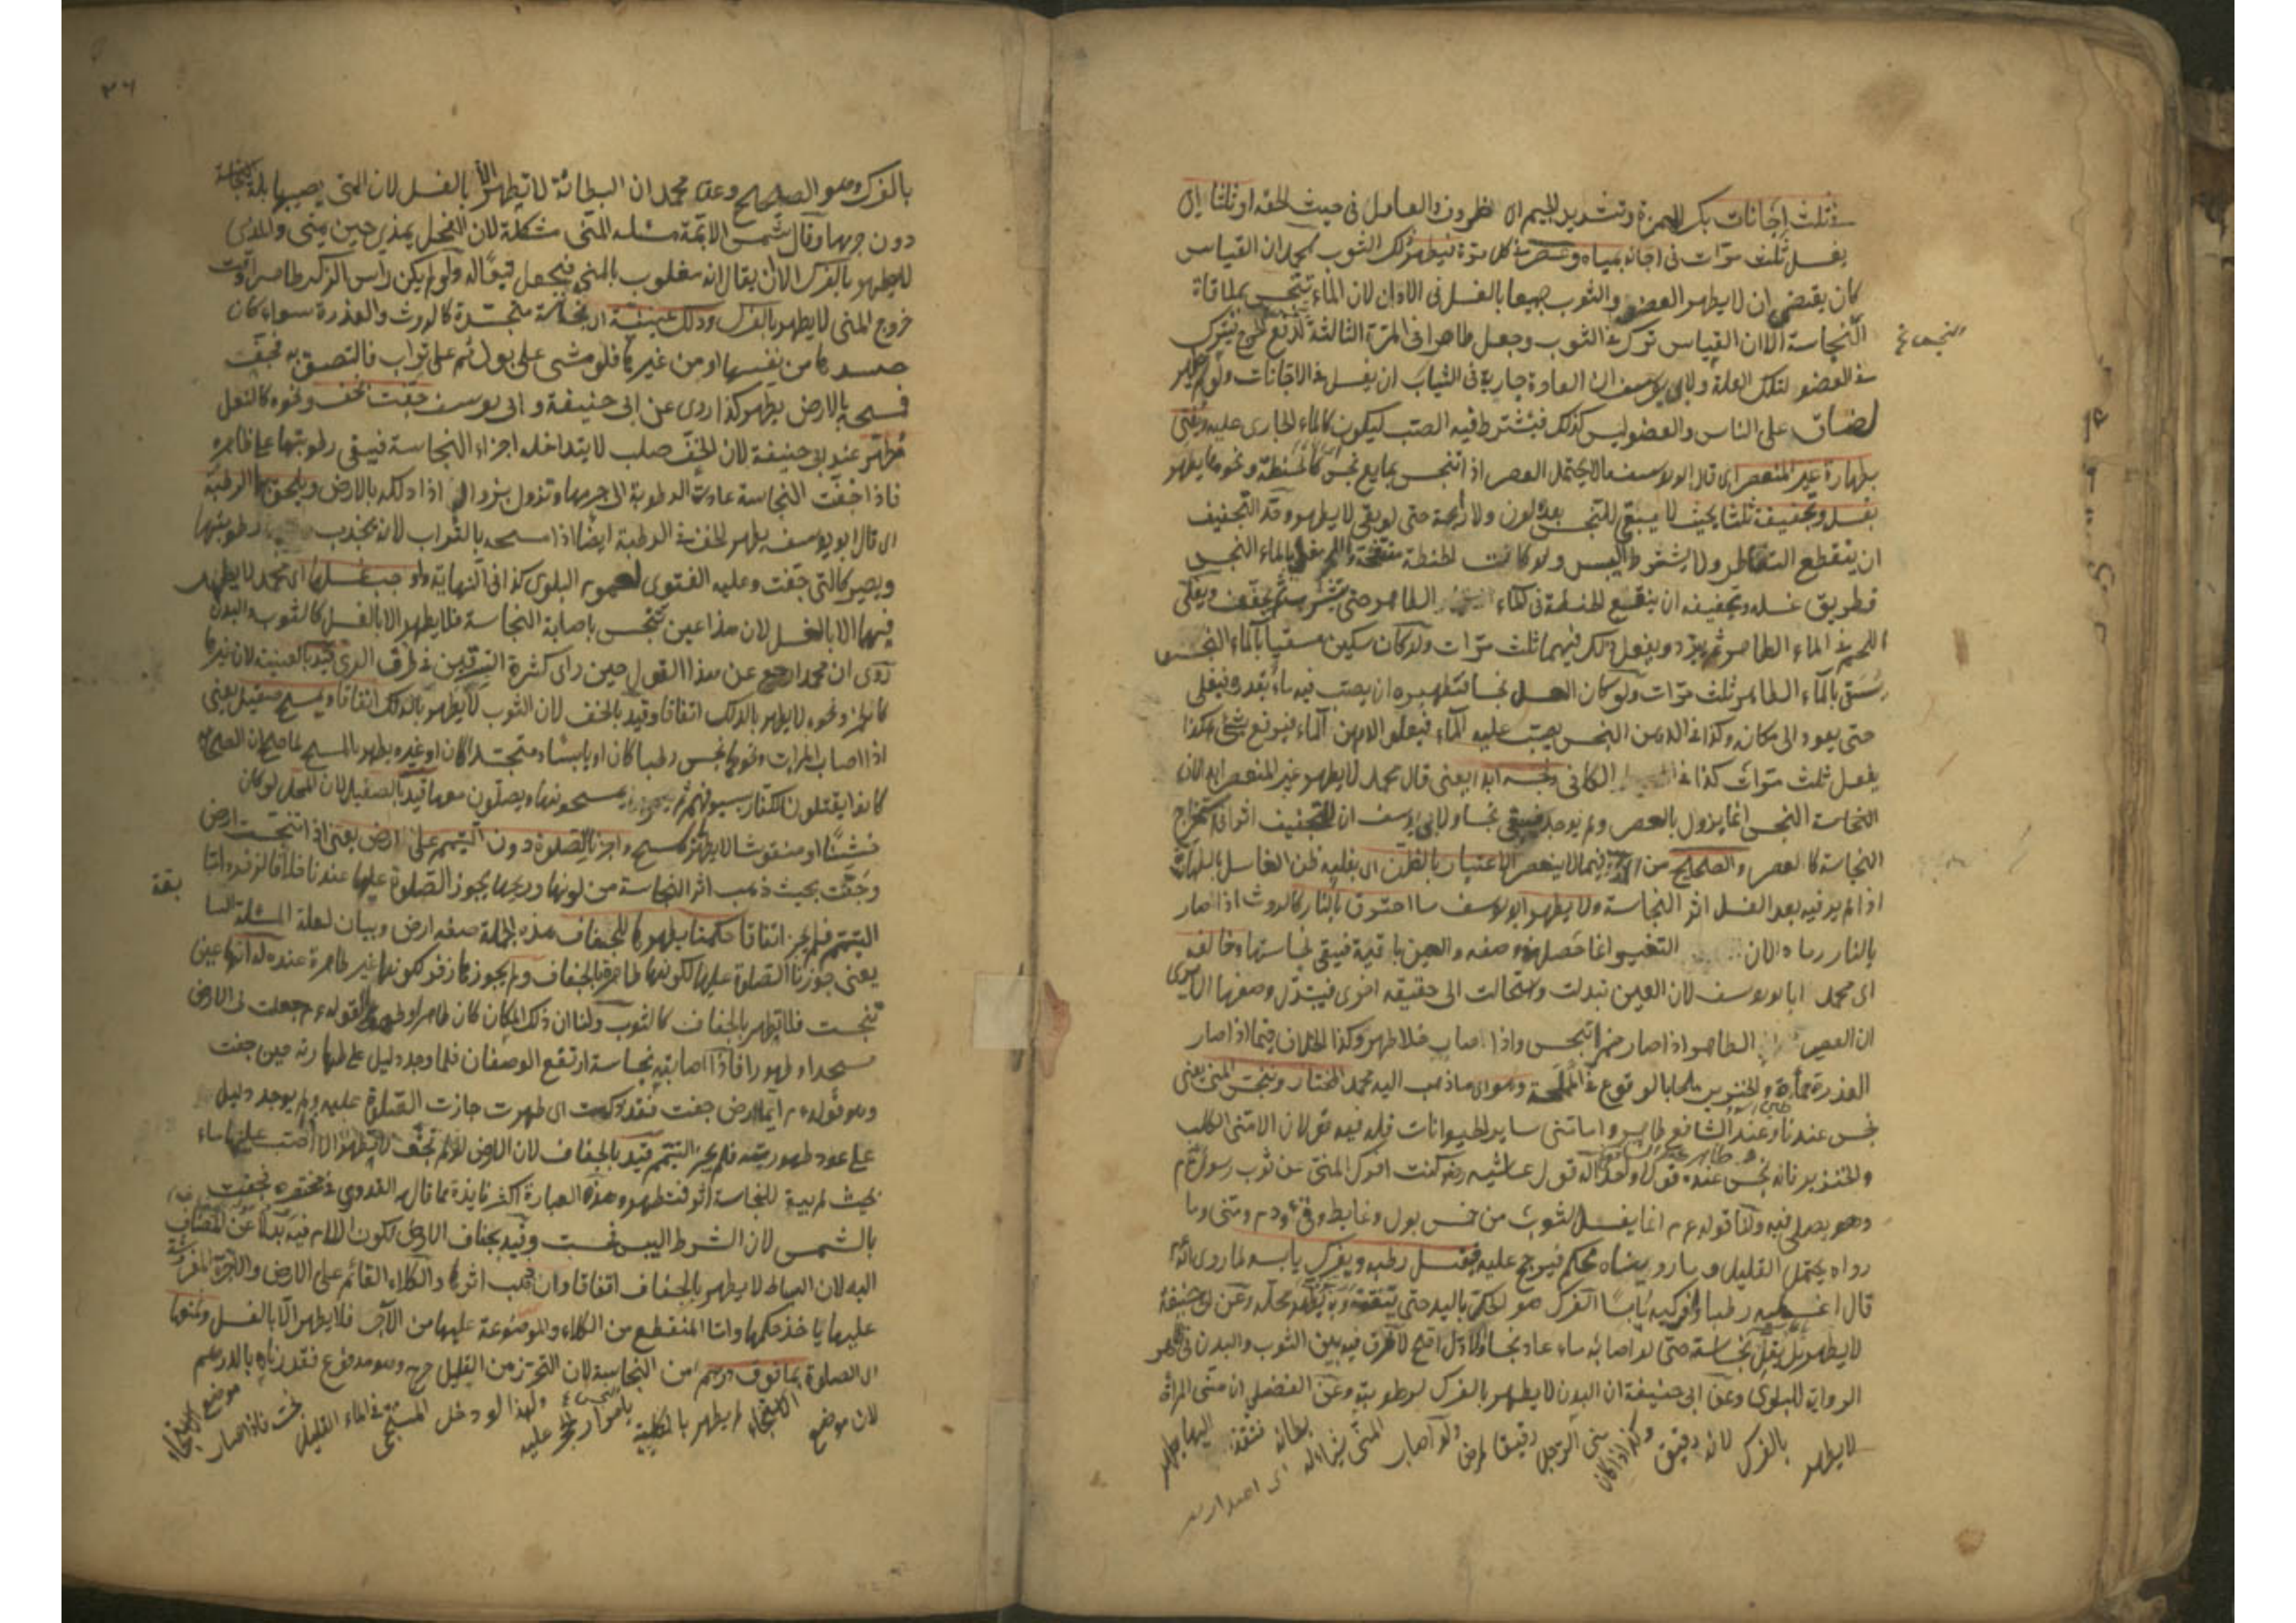 في ثلث اجانات بكسر الهمزة وتشديد الجيم اى ظروف والعامل فى حيث لحقه او ثلثا اى
يغسل ثلث مرّات فى اجانة بمياه وعصر فى كل مرّة فيطهر ذلك الثوب لمحمد ان القياس
كان يقتضى ان لا يطهر العضو والثوب جميعا بالغسل فى الاوانى لان الماء يتنجس بملاقاة
النجاسة الا ان القياس ترك فى الثوب وجعل طاهرا فى المرّة الثالثة لدفع الحرج فيترك
فى العضو لتلك العلة ولابى يوسف ان العادة جارية فى الثياب ان يغسل فى الاجانات ولو لم يطهر
لضاق على الناس والعضو ليس كذلك فيشترط فيه الصب ليكون كالماء الجارى عليه ويفتى
بطهارة غير المنعصر اى قال ابو يوسف ما لا يحتمل العصر اذا تنجس بمايع نجس كالحنطة ونحوها يطهر
بغسله وتجفيفه ثلثا بحيث لا يبقى للنجس بعده لون ولا رايحة حتى لو بقى لا يطهر وحدّ التجفيف
ان ينقطع التقاطر ولا يشترط اليبس ولو كانت الحنطة منتفخة واللحم مغلى بالماء النجس
فطريق غسله وتجفيفه ان ينقع الحنطة فى الماء الطاهر حتى تتشرب ثم يجفف ويغلى
اللحم فى الماء الطاهر ثم يبرد ويفعل ذلك فيهما ثلث مرّات ولو كان سكين مسقيا بالماء النجس
يسقى بالماء الطاهر ثلث مرّات ولو كان العسل نجسا فتطهيره ان يصب فيه ماء بقدره فيغلى
حتى يعود الى مكانه وكذا فى الدهن النجس يصب عليه الماء فيعلو الدهن الماء فيرفع بشئ هكذا
يفعل ثلث مرّات كذا فى الكافى ونجسه ابدا يعنى قال محمد لا يطهر غير المنعصر ابدا لان
النجاسة انما يزول بالعصر ولم يوجد فيبقى نجسا ولابى يوسف ان للتجفيف اثرا فى استخراج
النجاسة كالعصر والصحيح من فيما لا ينعصر الاعتبار بالظن اى بغلبه ظن الغاسل بالطهارة
اذا لم ير فيه بعد الغسل اثر النجاسة ولا يطهر ابو يوسف ما احترق بالنار كالروث اذا صار
بالنار رمادا لان التغيير انما حصل فى وصفه والعين باقية فيبقى نجاستها وخالفه
اى محمد ابا يوسف لان العين تبدلت واستحالت الى حقيقة اخرى فيتبدل وصفها الا يرى
ان العصير الطاهر اذا صار خمرا تنجس واذا صار خلا طهر وكذا الخلاف فيما اذا صار
العذرة حمأة والخنزير ملحا بالوقوع فى المملحة وهو اى ما ذهب اليه محمد المختار وينجس المنى يعنى
نجس عندنا وعند الشافعى طاهر واما منى ساير الحيوانات فله فيه قولان الا منى الكلب
والخنزير فانه نجس عنده قولا واحدا له قول عائشه رضه كنت افرك المنى عن ثوب رسول الله عم
وهو يصلى فيه ولنا قوله عم انما يغسل الثوب من خمس بول وغايط وقئ ودم ومنى وما
رواه يحتمل القليل وما رويناه محكم فيرجح عليه فيغسل رطبه ويفرك يابسه لما روى انه عم
قال اغسليه رطبا وافركيه يابسا الفرك هو الحك باليد حتى يتفتت وبه يطهر محله وعن ابى حنيفة
لا يطهر بل يقل نجاسته حتى لو اصابه ماء عاد نجسا والاول اصح لا فرق فيه بين الثوب والبدن فى ظاهر
الرواية للبلوى وعن ابى حنيفة ان البدن لا يطهر بالفرك لرطوبته وعن الفضلى ان منى المرأة
لا يطهر بالفرك لانه رقيق وكذا اذا كان منى الرجل رقيقا لمرض ولو اصاب المنى شيئا له بطانة فنفذ اليها يطهر
بالفرك وهو الصحيح وعن محمد ان البطانة لا تطهر الا بالغسل لان المنى يصيبها بلة النجاسة
دون جرمها وقال شمس الائمة مسئله المنى مشكلة لان الفحل يمذى حين يمنى والمذى
لا يطهر بالفرك الا ان يقال انه مغلوب بالمنى فيجعل تبعا له ولو لم يكن راس الذكر طاهرا وقت
خروج المنى لا يطهر بالفرك وذلك نجاسة متجسدة كالروث والعذرة سواء كان
جسدها من نفسها او من غيرها فلو مشى على بول ثم على تراب فالتصق به فجفت
فمسحه بالارض يطهر كذا روى عن ابى حنيفة وابى يوسف جفت بخف ونحوه كالنعل
مطهر عند ابى حنيفة لان الخف صلب لا يتداخله اجزاء النجاسة فيبقى رطوبتها على ظاهره
فاذا جفت النجاسة عادت الرطوبة الى جرمها وتزول بزواله اذا دلكه بالارض ويلحق بها الرطبة
اى قال ابو يوسف يطهر الخف فى الرطبة ايضا اذا مسحه بالتراب لانه يجذب رطوبتها
ويصير كالتى جفت وعليه الفتوى لعموم البلوى كذا فى النهاية واوجب غسلها اى محمد لا يطهر
فيها الا بالغسل لان هذا عين تنجس باصابة النجاسة فلا يطهر الا بالغسل كالثوب والبدن
روى ان محمدا رجع عن هذا القول حين راى كثرة السرقين فى طرق الرى قيد بالعينية لان غيرها
كالخمر ونحوه لا يطهر بالدلك اتفاقا وقيد بالخف لان الثوب لا يطهر بالدلك اتفاقا ويمسح صقيل يعنى
اذا اصاب المرات ونحوها نجس رطبا كان او يابسا متجسدا كان او غيره يطهر بالمسح لما صح ان الصحابة
كانوا يقتلون الكفار بسيوفهم ثم يمسحونها ويصلون معها قيد بالصقيل لان المحل لو كان
خشنا او منقوشا لا يطهر بمسح واجزنا الصلوة دون التيمم على ارض يعنى اذا تنجست ارض
وجفت بحيث ذهب اثر النجاسة من لونها وريحها يجوز الصلوة عليها عندنا خلافا لزفر واما
التيمم فلم يجز اتفاقا حكمنا بطهرها للجفاف هذه الجملة صفه ارض وبيان لعلة المسئلة السابقة
يعنى جوزنا الصلوة عليها لكونها طاهرة بالجفاف ولم يجوزها زفر لكونها غير طاهرة عنده له انها عين
تنجست فلا تطهر بالجفاف كالثوب ولنا ان ذلك المكان كان طاهرا وطهورا لقوله عم جعلت لى الارض
مسجدا وطهورا فاذا اصابته نجاسة ارتفع الوصفان فلما وجد دليل على طهارته حين جفت
وهو قوله عم ايما ارض جفت فقد ذكت اى طهرت جازت الصلوة عليه ولم يوجد دليل
على عود طهوريته فلم يجز التيمم قيد بالجفاف لان الارض لو لم تجف لا تطهر الا اذا صب عليها ماء
بحيث لم يبق للنجاسة اثر فتطهر وهذه العبارة اكثر فايدة مما قال القدورى فى مختصره فجفت
بالشمس لان الشرط اليبس فحسب وقيد بجفاف الارض لكون اللام فيه بدلا عن المضاف
اليه لان البساط لا يطهر بالجفاف اتفاقا وان ذهب اثرها والكلاء القائم على الارض والآجرة المفروشة
عليها ياخذ حكمها واما المنقطع من الكلاء والموضوعة عليها من الآجر فلا يطهر الا بالغسل ومنعوا
الصلوة بما فوق درهم من النجاسة لان التحرز من القليل حرج وهو مدفوع فقدرناه بالدرهم
لان موضع الاستنجاء لم يطهر بالكلية بامرار الحجر عليه ولهذا لو دخل المستنجى فى الماء القليل نجس فاذا صار موضع الاستنجاء